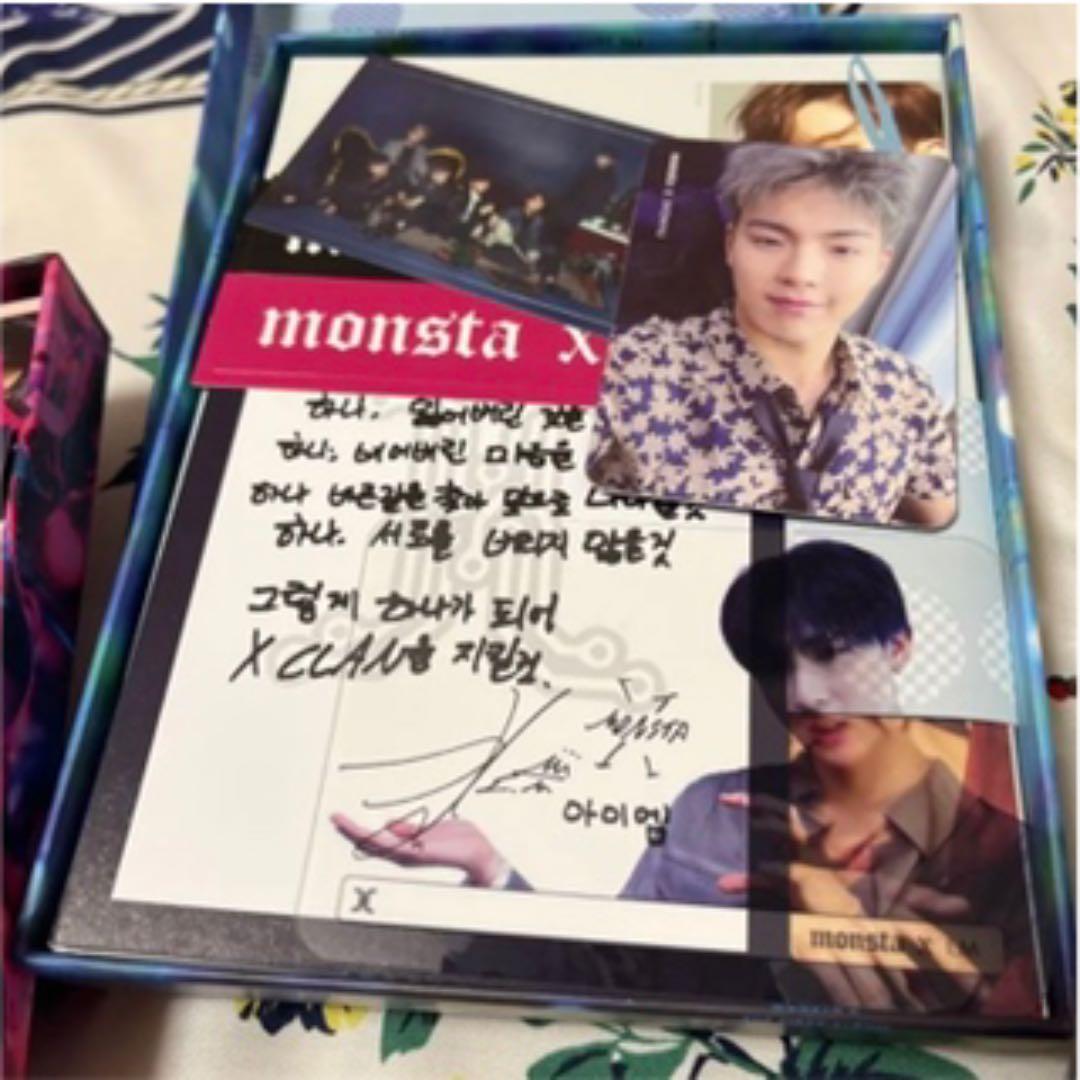 monsta x
하나. 잃어버린 것은
하나. 비어버린 마음은
하나 바른길을 찾아 앞으로 나아갈것
하나. 서로를 버리지 않을것
그렇게 하나가 되어
X CLAN을 지킬것.
MONSTA
아이엠
X
monsta x I.M